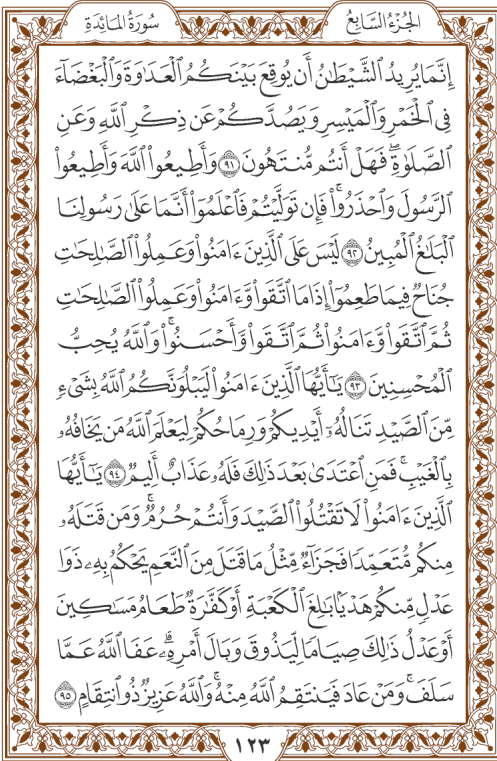 سُورَةُ المَائِدَةِ
الجُزْءُ السَّابِعُ
إِنَّمَا يُرِيدُ الشَّيْطَٰنُ أَن يُوقِعَ بَيْنَكُمُ الْعَدَاوَةَ وَالْبَغْضَآءَ
فِي الْخَمْرِ وَالْمَيْسِرِ وَيَصُدَّكُمْ عَن ذِكْرِ اللَّهِ وَعَنِ
الصَّلَوٰةِ ۖ فَهَلْ أَنتُم مُّنتَهُونَ ٩١ وَأَطِيعُوا۟ اللَّهَ وَأَطِيعُوا۟
الرَّسُولَ وَاحْذَرُوا۟ ۚ فَإِن تَوَلَّيْتُمْ فَاعْلَمُوٓا۟ أَنَّمَا عَلَىٰ رَسُولِنَا
الْبَلَٰغُ الْمُبِينُ ٩٢ لَيْسَ عَلَى الَّذِينَ ءَامَنُوا۟ وَعَمِلُوا۟ الصَّٰلِحَٰتِ
جُنَاحٌ فِيمَا طَعِمُوٓا۟ إِذَا مَا اتَّقَوا۟ وَّءَامَنُوا۟ وَعَمِلُوا۟ الصَّٰلِحَٰتِ
ثُمَّ اتَّقَوا۟ وَّءَامَنُوا۟ ثُمَّ اتَّقَوا۟ وَّأَحْسَنُوا۟ ۗ وَاللَّهُ يُحِبُّ
الْمُحْسِنِينَ ٩٣ يَٰٓأَيُّهَا الَّذِينَ ءَامَنُوا۟ لَيَبْلُوَنَّكُمُ اللَّهُ بِشَىْءٍ
مِّنَ الصَّيْدِ تَنَالُهُۥٓ أَيْدِيكُمْ وَرِمَاحُكُمْ لِيَعْلَمَ اللَّهُ مَن يَخَافُهُۥ
بِالْغَيْبِ ۚ فَمَنِ اعْتَدَىٰ بَعْدَ ذَٰلِكَ فَلَهُۥ عَذَابٌ أَلِيمٌ ٩٤ يَٰٓأَيُّهَا
الَّذِينَ ءَامَنُوا۟ لَا تَقْتُلُوا۟ الصَّيْدَ وَأَنتُمْ حُرُمٌ ۚ وَمَن قَتَلَهُۥ
مِنكُم مُّتَعَمِّدًا فَجَزَآءٌ مِّثْلُ مَا قَتَلَ مِنَ النَّعَمِ يَحْكُمُ بِهِۦ ذَوَا
عَدْلٍ مِّنكُمْ هَدْيًۢا بَٰلِغَ الْكَعْبَةِ أَوْ كَفَّٰرَةٌ طَعَامُ مَسَٰكِينَ
أَوْ عَدْلُ ذَٰلِكَ صِيَامًا لِّيَذُوقَ وَبَالَ أَمْرِهِۦ ۗ عَفَا اللَّهُ عَمَّا
سَلَفَ ۚ وَمَنْ عَادَ فَيَنتَقِمُ اللَّهُ مِنْهُ ۗ وَاللَّهُ عَزِيزٌ ذُو انتِقَامٍ ٩٥
١٢٣